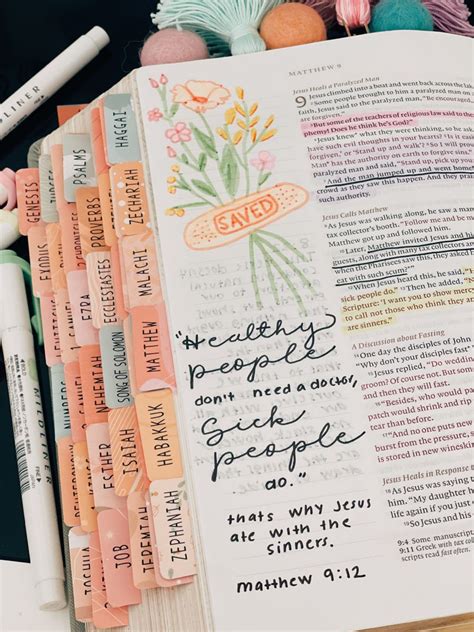 PLINER
MILDLINER
GENESIS
EXODUS
NUMBERS
JOSHUA
PSALMS
EZRA
NEHEMIAH
ESTHER
JOB
PROVERBS
ECCLESIASTES
SONG OF SOLOMON
ISAIAH
JEREMIAH
HAGGAI
ZECHARIAH
MALACHI
MATTHEW
HABAKKUK
ZEPHANIAH
SAVED
"Healthy
people
don't need a doctor,
Sick
people
do."
thats why Jesus
ate with the
sinners.
matthew 9:12
MATTHEW 9
Jesus Heals a Paralyzed Man
9 Jesus climbed into a boat and went back across the lak
Some people brought to him a paralyzed man on
faith, Jesus said to the paralyzed man, "Be encourag
forgiven."
But some of the teachers of religious law said to the
phemy! Does he think he's God?"
Jesus knew what they were thinking, so he a
have such evil thoughts in your hearts? Is it easie
forgiven,' or 'Stand up and walk'? So I will p
Man has the authority on earth to forgive s
paralyzed man and said, "Stand up, pick up you
And the man jumped up and went home
crowd saw this happen. And they prais
such authority.
Jesus Calls Matthew
As Jesus was walking along, he saw
tax collector's booth. "Follow me and
him.
Later, Matthew invited Jesus and hi
guests, along with many tax collectors an
when the Pharisees saw this, they asked
eat with such scum?"
When Jesus heard this, he said,
sick people do." Then he added,
Scripture: 'I want you to show mercy
to call not those who think they
are sinners."
A Discussion about Fasting
One day the disciples of John
"Why don't your disciples fast
Jesus replied, "Do wedding
groom? Of course not. But som
and then they will fast.
"Besides, who would patch
patch would shrink and rip
tear than before.
"And no one puts new w
burst from the pressure, s
is stored in new wineskin
Jesus Heals in Response
As Jesus was saying
"My daughter
life again if you just
So Jesus and his
9:11 Greek with tax coll
scripts read fast often.